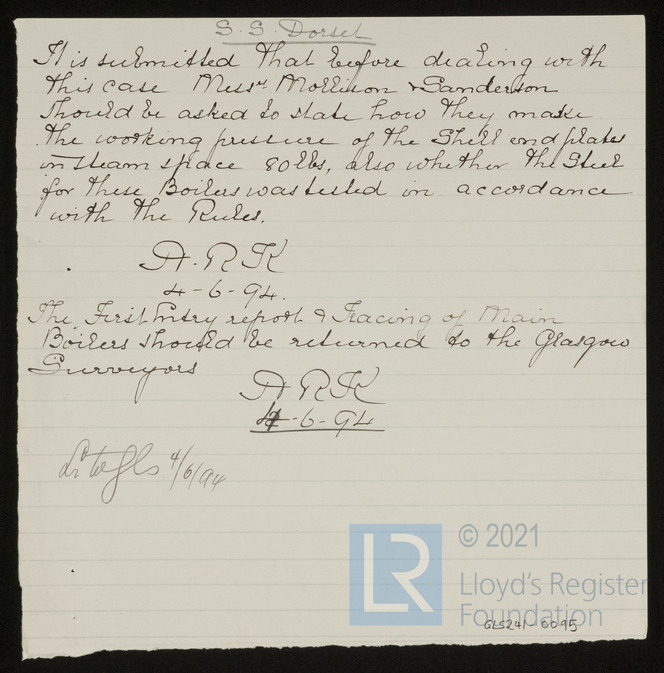 S.S. Dorset
It is submitted that before dealing with
this case Messrs Mollison & Sanderson
should be asked to state how they make
the working pressure of the Shell end plates
in steam space 80 lbs, also whether the Steel
for these Boilers was tested in accordance
with the Rules.
A.R.K
4-6-94.
The First Entry report & Tracing of Main
Boilers should be returned to the Glasgow
Surveyors
A R K
4-6-94
Lr to Gls 4/6/94
LR
© 2021
Lloyd's Register
Foundation
GLS241-0095